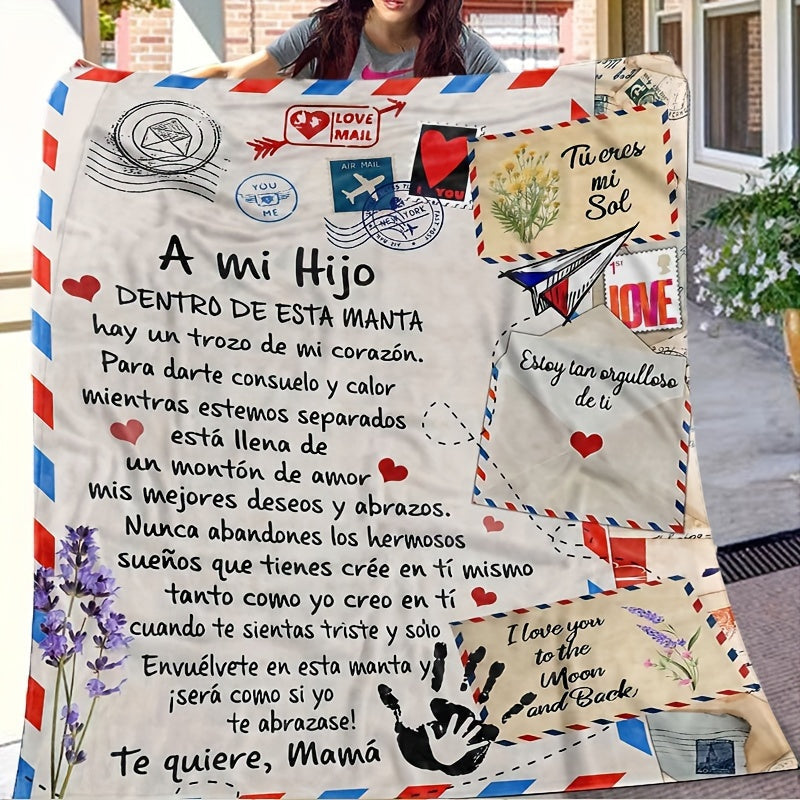 LOVE
MAIL
AIR MAIL
YOU
ME
I YOU
NEW YORK
Tú eres
mi
Sol
1ST
LOVE
A mi Hijo
DENTRO DE ESTA MANTA
hay un trozo de mi corazón.
Para darte consuelo y calor
mientras estemos separados
está llena de
un montón de amor
mis mejores deseos y abrazos.
Nunca abandones los hermosos
sueños que tienes crée en tí mismo
tanto como yo creo en tí
cuando te sientas triste y solo
Envuélvete en esta manta y
¡será como si yo
te abrazase!
Te quiere, Mamá
Estoy tan orgulloso
de ti
I love you
to the
Moon
and Back